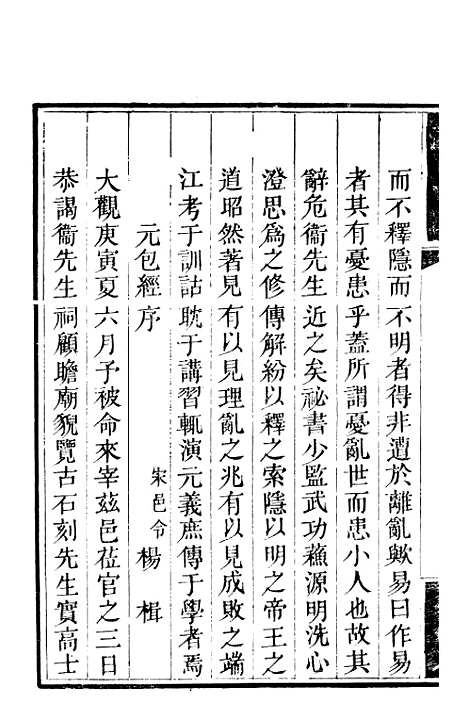 而不釋隱而不明者得非遭於離亂歟易曰作易
者其有憂患乎蓋所謂憂亂世而患小人也故其
辭危衞先生近之矣祕書少監武功蘓源明洗心
澄思爲之修傳解紛以釋之索隱以明之帝王之
道昭然著見有以見理亂之兆有以見成敗之端
江考于訓詁耽于講習輒演元義庶傳于學者焉
元包經序
宋邑令楊楫
大觀庚寅夏六月予被命來宰茲邑莅官之三日
恭謁衞先生祠顧瞻廟貌覽古石刻先生實高士